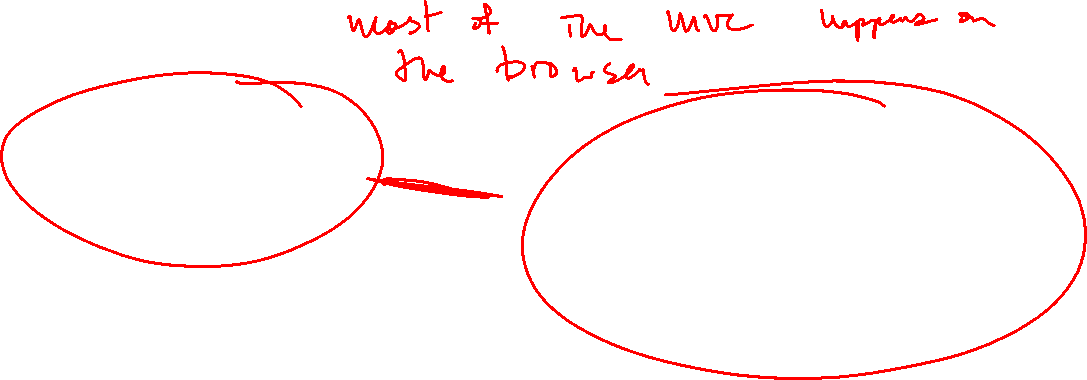 most of the mvc happens on
the browser